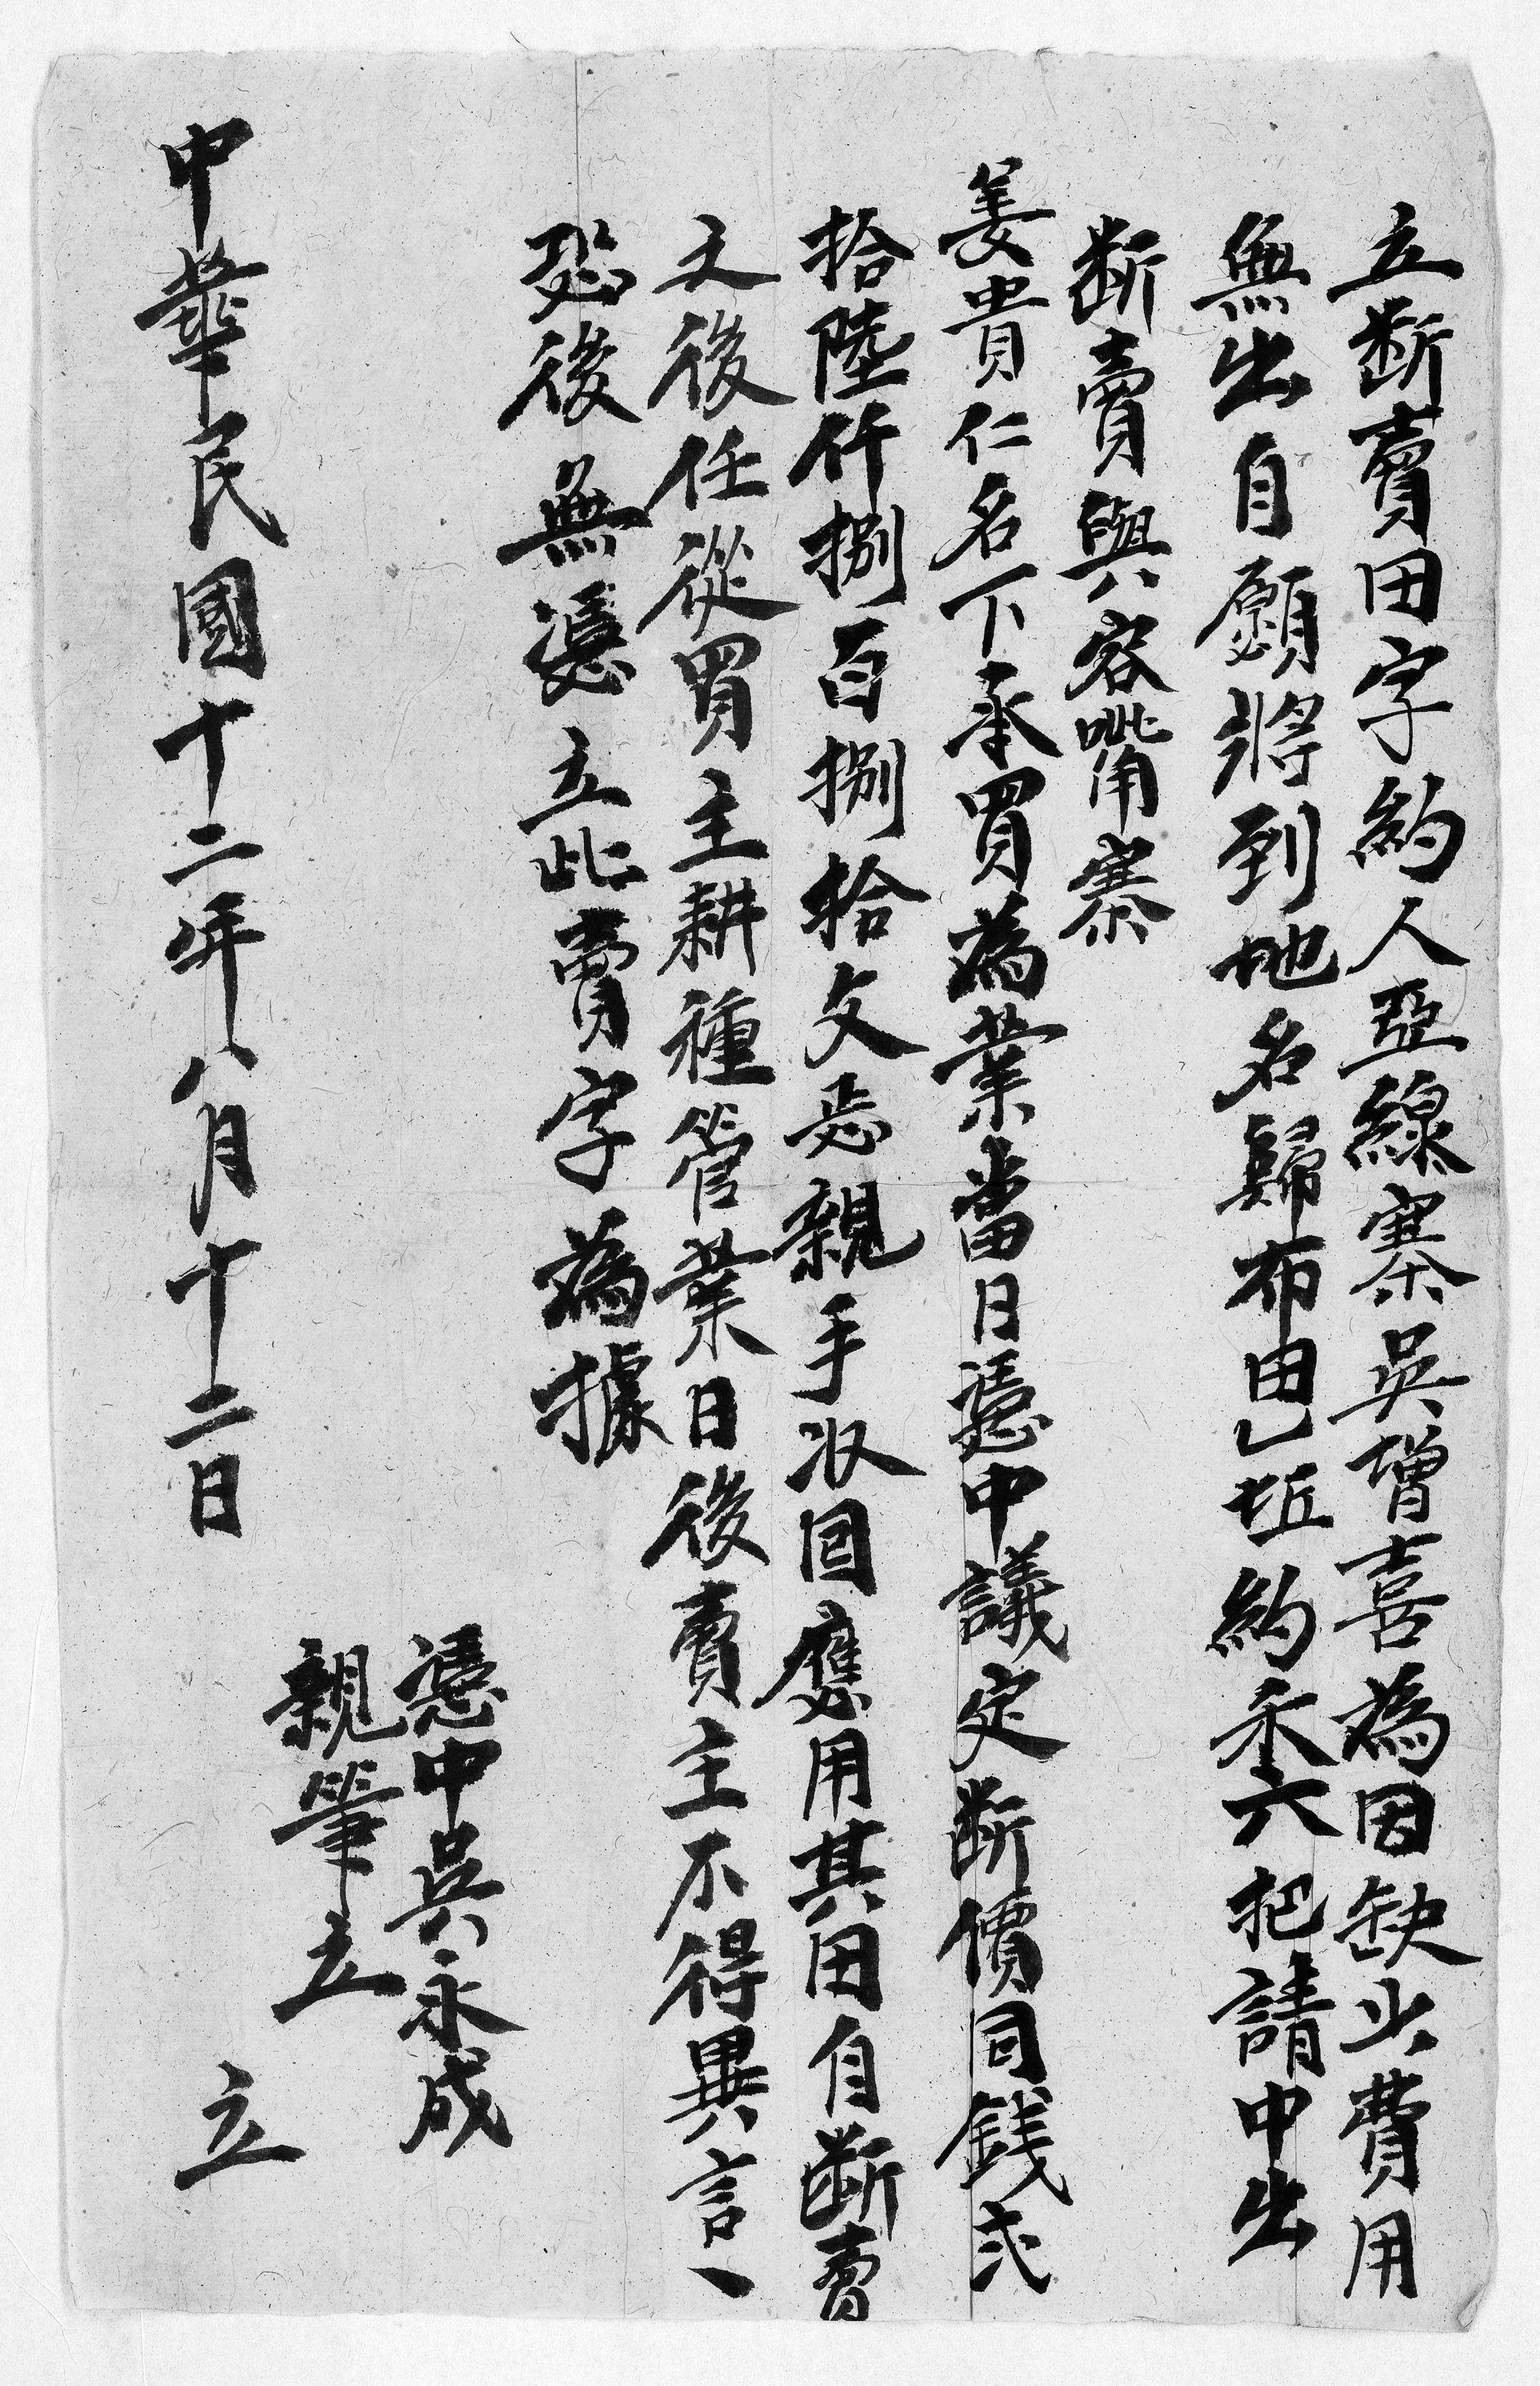 立断賣田字約人亞線寨吳增喜為因缺少費用
無出自願將到地名歸布田乙坵約禾六把請中出
断賣與容嘴寨
姜貴仁名下承買為業當日憑中議定断價同錢弍
拾陸仟捌百捌拾文恁親手收囬應用其田自断賣
之後任從買主耕種管業日後賣主不得異言、
恐後無憑立此賣字為據
憑中吳永成
親筆立
中華民國十二年八月十二日 立